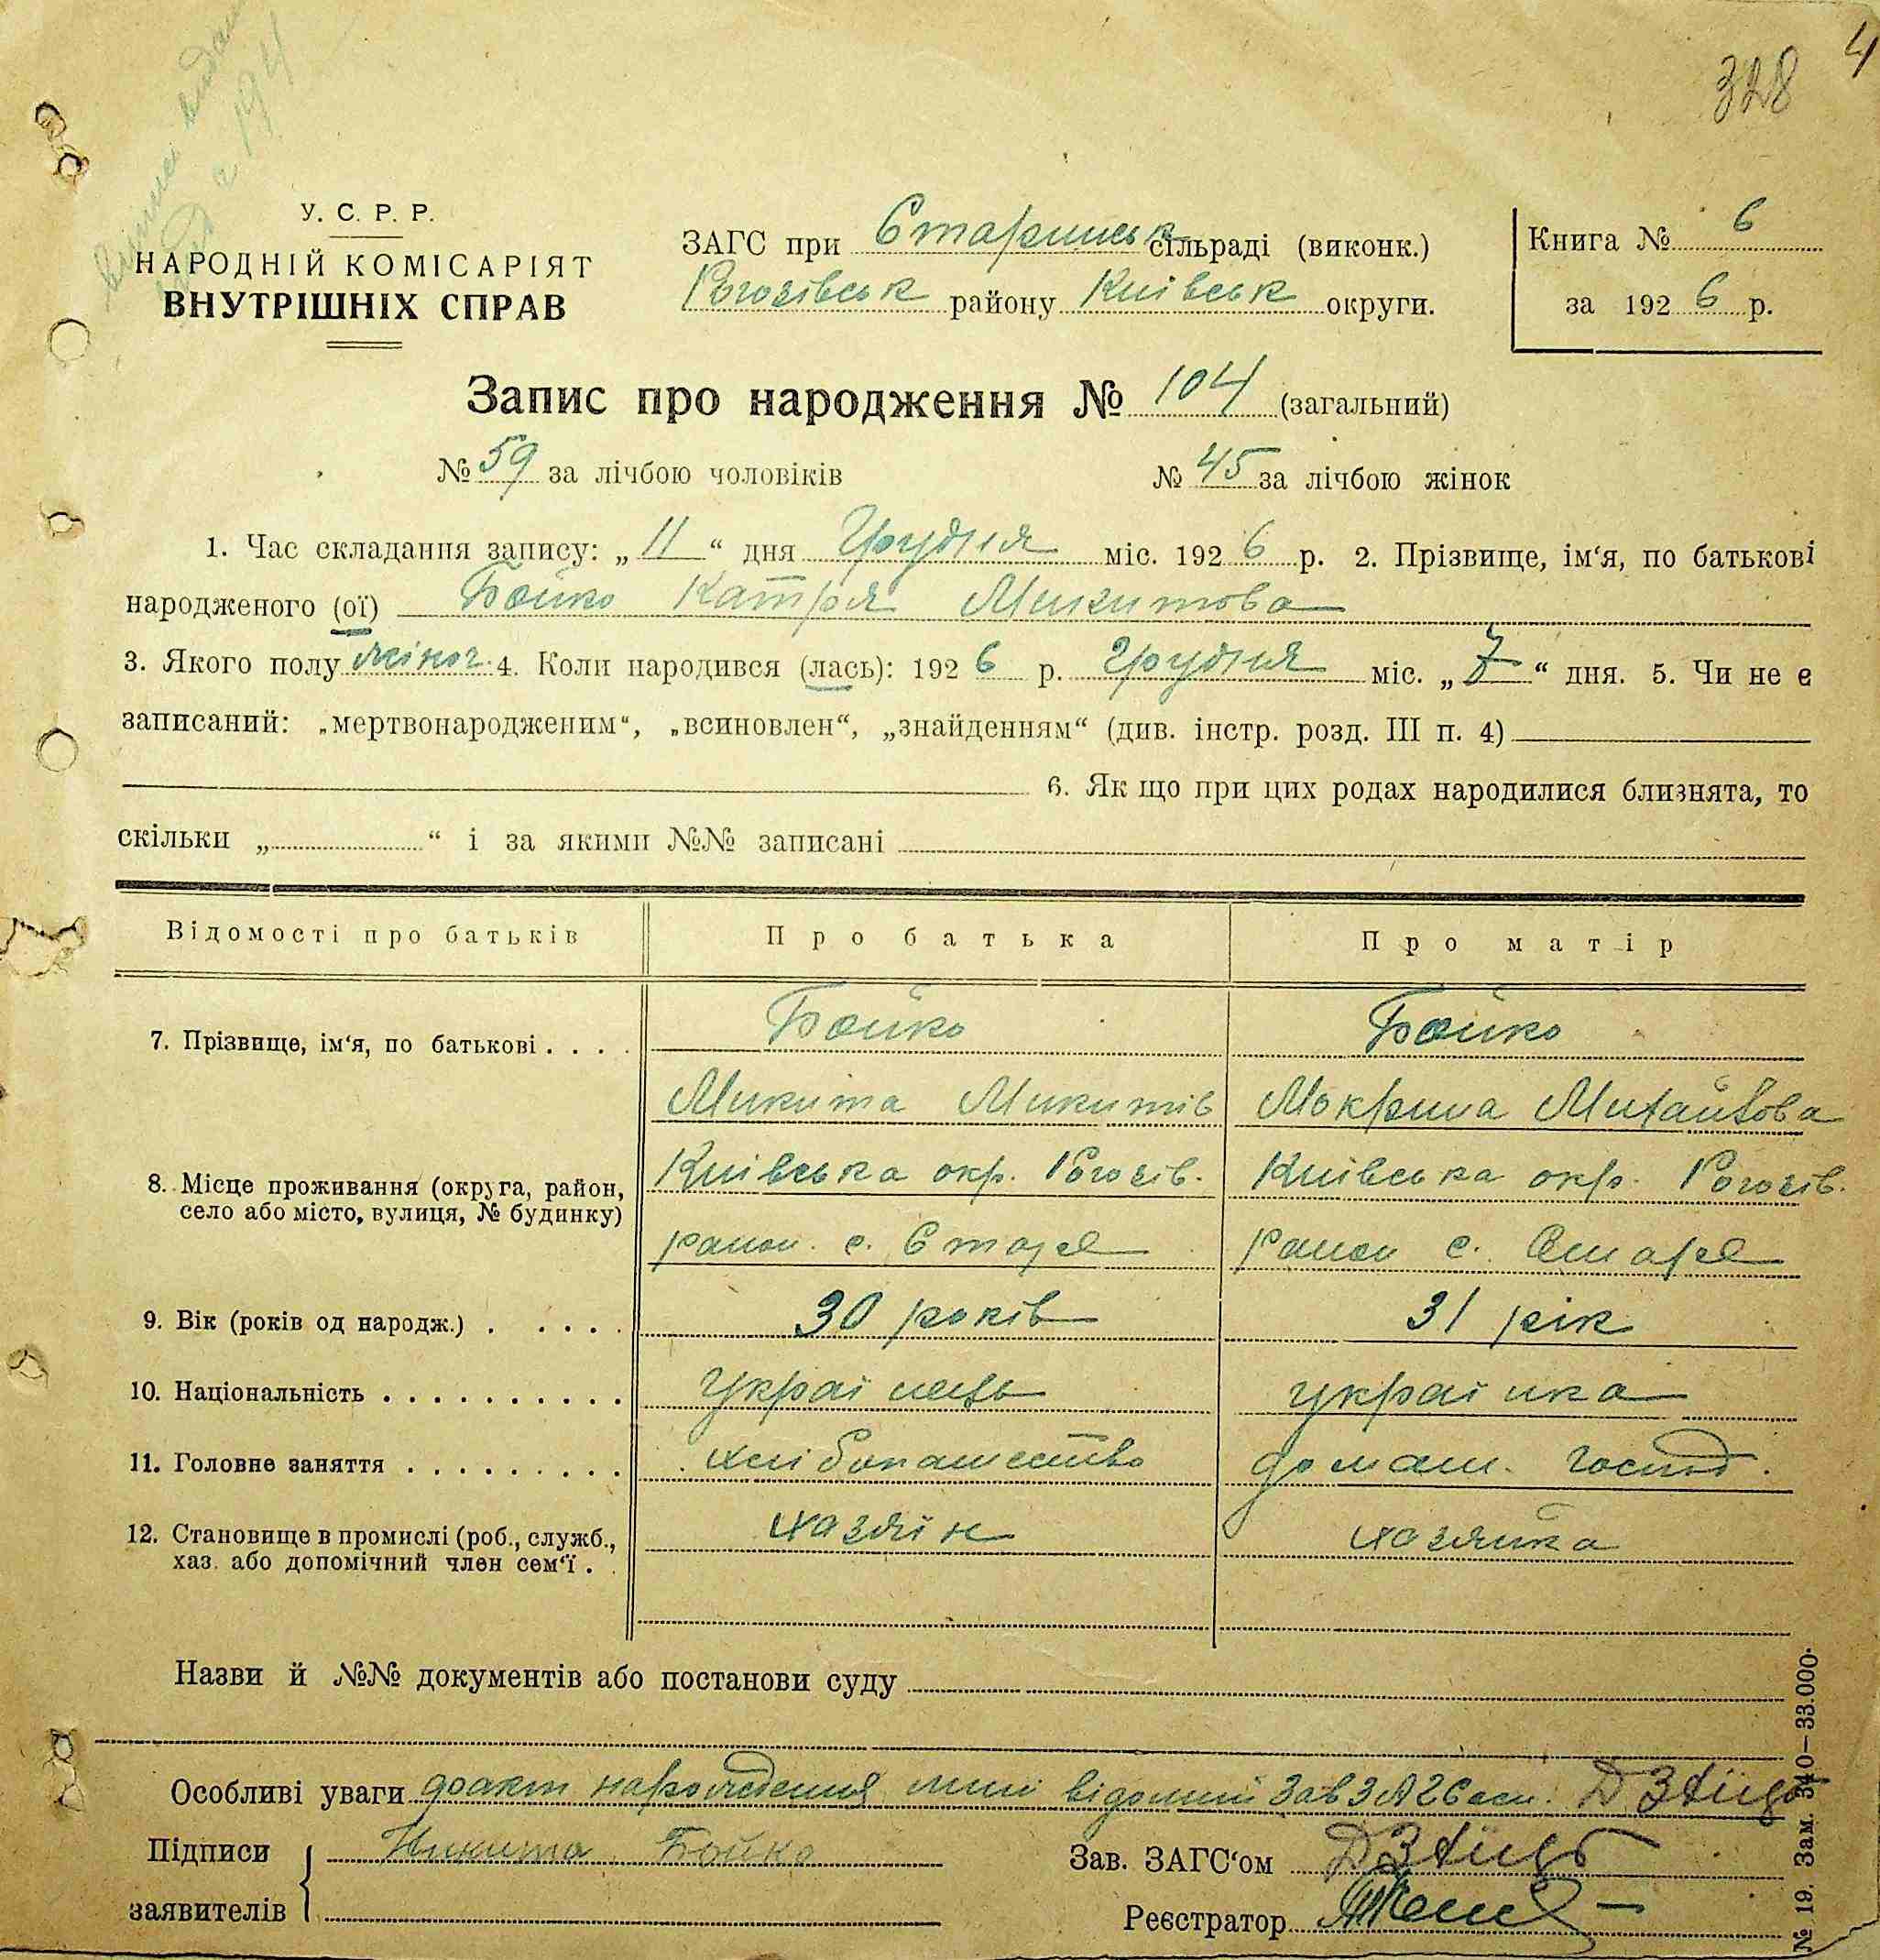 4
328
У. С. Р. Р.
НАРОДНІЙ КОМІСАРІЯТ
ВНУТРІШНІХ СПРАВ
ЗАГС при Старинськ сільраді (виконк.)
Рогозівськ району Київськ округи.
Книга № 6
за 1926 р.
Запис про народження № 104 (загальний)
№ 59 за лічбою чоловіків № 45 за лічбою жінок
1. Час складання запису: „11“ дня Грудня міс. 1926 р. 2. Прізвище, ім‘я, по батькові
народженого (ої) Бойко Катря Микитова
3. Якого полу жіноч. 4. Коли народився (лась): 1926 р. грудня міс. „7“ дня. 5. Чи не є
записаний: „мертвонародженим“, „всиновлен“, „знайденням“ (див. інстр. розд. III п. 4)
6. Як що при цих родах народилися близнята, то
скільки „ “ і за якими №№ записані
Відомості про батьків Про батька Про матір
7. Прізвище, ім‘я, по батькові . . . . Бойко Бойко
Микита Микитів Мокрина Михайлова
8. Місце проживання (округа, район, Київська окр. Рогозів. Київська окр. Рогозів.
село або місто, вулиця, № будинку)
район. с. Старе район с. Старе
9. Вік (років од народж.) . . . . . 30 років 31 рік
10. Національність . . . . . . . . . . Українець українка
11. Головне заняття . . . . . . . . . хліборобство домаш. господ.
12. Становище в промислі (роб., служб., хазяїн хазяйка
хаз. або допомічний член сем‘ї .
Назви й №№ документів або постанови суду
Особливі уваги факт народження мині відомий Зав ЗАГСом. Д Заяць
Підписи Никита Бойко
заявителів
Зав. ЗАГС‘ом Д Заяць
Реєстратор
№ 19. Зам. 340—33.000.